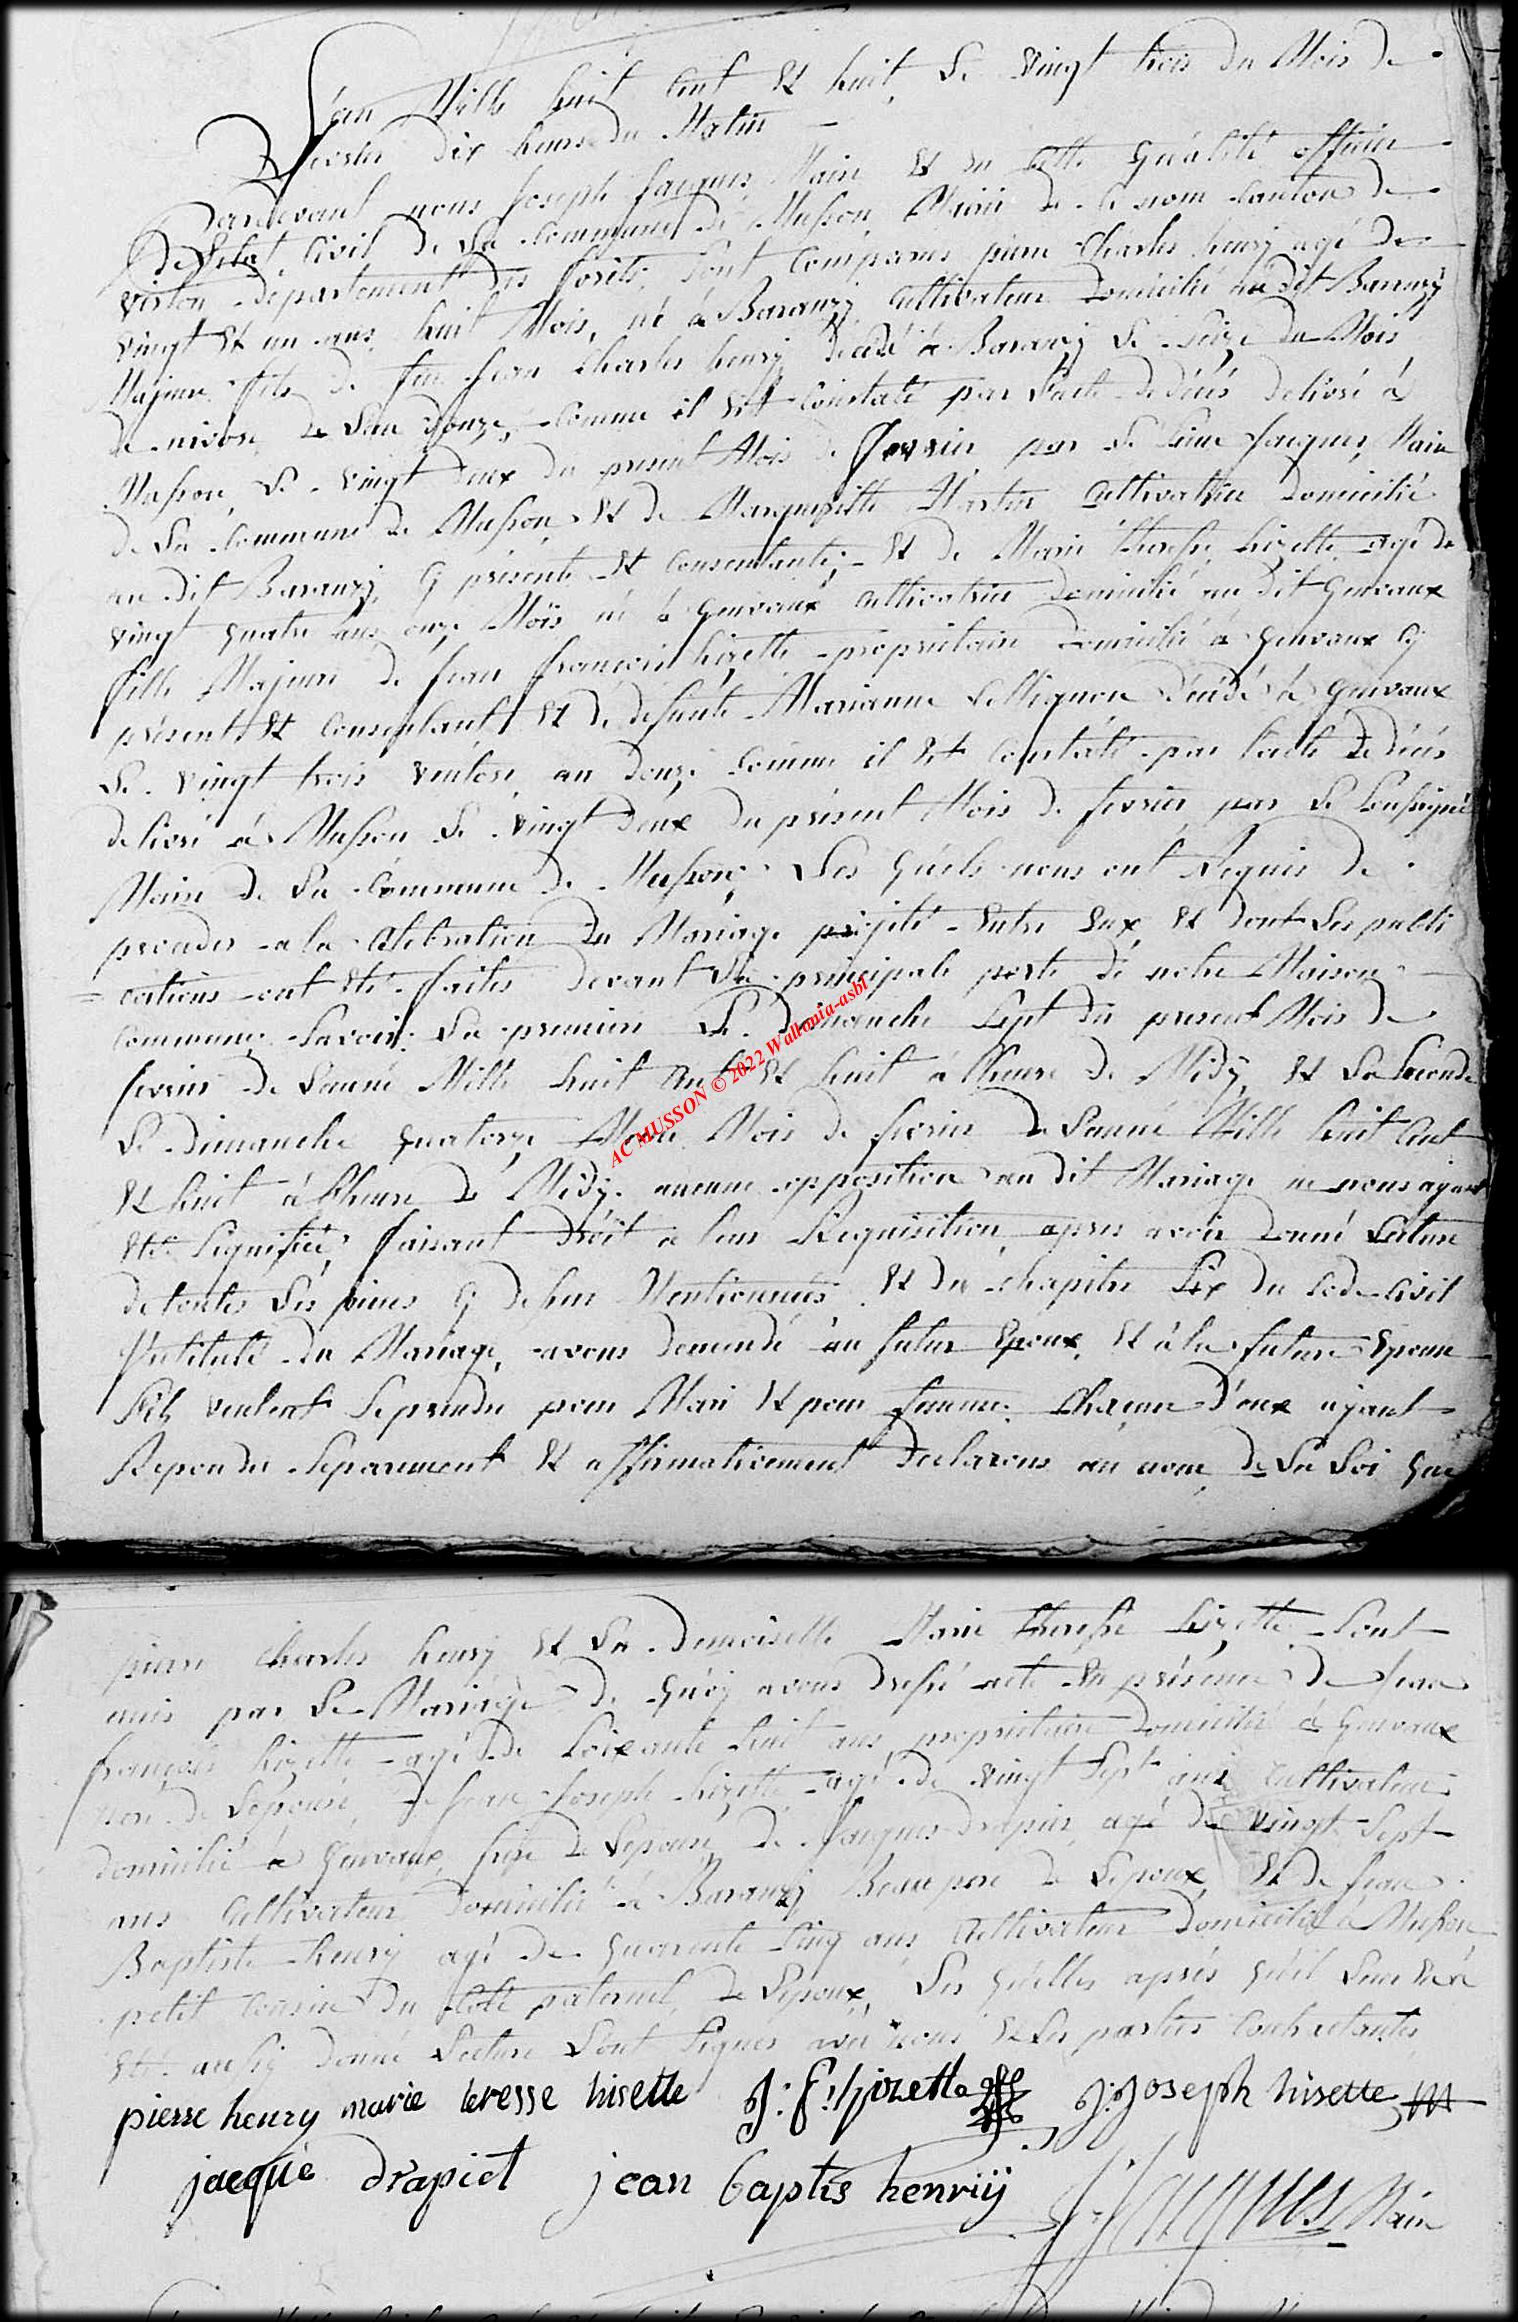 L'an Mille huit Cent Et huit, Le Vingt trois du Mois de
fevrier dix heures du Matin
Pardevant nous Joseph Jacques Maire Et en Cette Qualité officier
de L'etat Civil de La Commune de Musson, Mairie de Ce nom Canton de
virton, departement des forêts, Sont Comparus pierre Charles henry agé de
vingt Et un ans huit Mois, né à Baranzy, Cultivateur domicilié au dit Baranzy
Majeur fils de feu Jean Charles henry décédé à Baranzy Le Seize du Mois
de nivose de L'an douze, Comme il Est Constaté par L'acte de décés délivré à
Musson, Le vingt deux du présent Mois de fevrier par Le Sieur Jacques, Maire
de La Commune de Musson, Et de Margueritte Martin Cultivatrice domicilié
au dit Baranzy, Cy présente Et Consentante; Et de Marie theresse hizette agé de
vingt quatre ans onze Mois né à Gennevaux Cultivatrice domicilié au dit Gennevaux
fille Majeure de Jean françois hizette, propriétaire domicilié à Gennevaux Cy
présent Et Consentant Et de défunte Marianne decédé à Gennevaux
Le vingt trois ventose an douze Comme il Est Constaté par l'acte de décés
délivré à Musson Le vingt deux du présent Mois de fevrier par Le Soussigné
Maire de La Commune de Musson; Les quels nous ont Requis de
proceder a la Célébration du Mariage projété Entre Eux, Et dont Les publi
=cations ont été faites devant La principale porte de notre Maison
Commune Savoir: La premiere Le dimanche Sept du present Mois de
fevrier de L'année Mille huit Cent Et huit à L'heure de Midy, Et La Seconde
Le dimanche Quatorze Mois de fevrier de L'année Mille huit Cent
Et huit à L'heure de Midy. aucune opposition au dit Mariage ne nous ayant
été Signifiée, faisant droit a leur Requisition, apres avoir donné Lecture
de toutes Les pieces Cy dessus Mentionnées Et du chapitre Six du Code Civil
Intitulé du Mariage, avons demandé au futur Epoux, Et à la future Epouse
S'ils veulent Se prendre pour Mari Et pour femme: Chacun d'eux ayant
Repondu Separement Et affirmativement Declarons au nom de La Loi que
pierre charles henry Et La demoiselle Marie theresse hizette Sont
unis par Le Mariage de quoy avons dressé acte En présence de Jean
françois hizette agé de Soixante huit ans, propriétaire domicilié à Gennevaux
pere de L'epouse, de Jean Joseph hizette agé de vingt Sept ans Cultivateur
domicilié à Gennevaux, frere de L'epouse, de Jacques drapier, agé de vingt Sept
ans Cultivateur domicilié à Baranzy Beaupere de L'epoux, Et de Jean
Baptiste henry agé de Quarante Cinq ans Cultivateur domicilié à Musson
petit Cousin du Coté paternel, de L'epoux, Les quelles aprés qu'il Leur En a
été aussy donné Lecture Sont Signer avec nous Et Les parties Contractantes
pierre henry marie teresse hisette J: f: hizette J: Joseph hisette
jacque drapiet jean baptis henriij
J: Jacques Maire
AC MUSSON © 2022 Wallonia-asbl